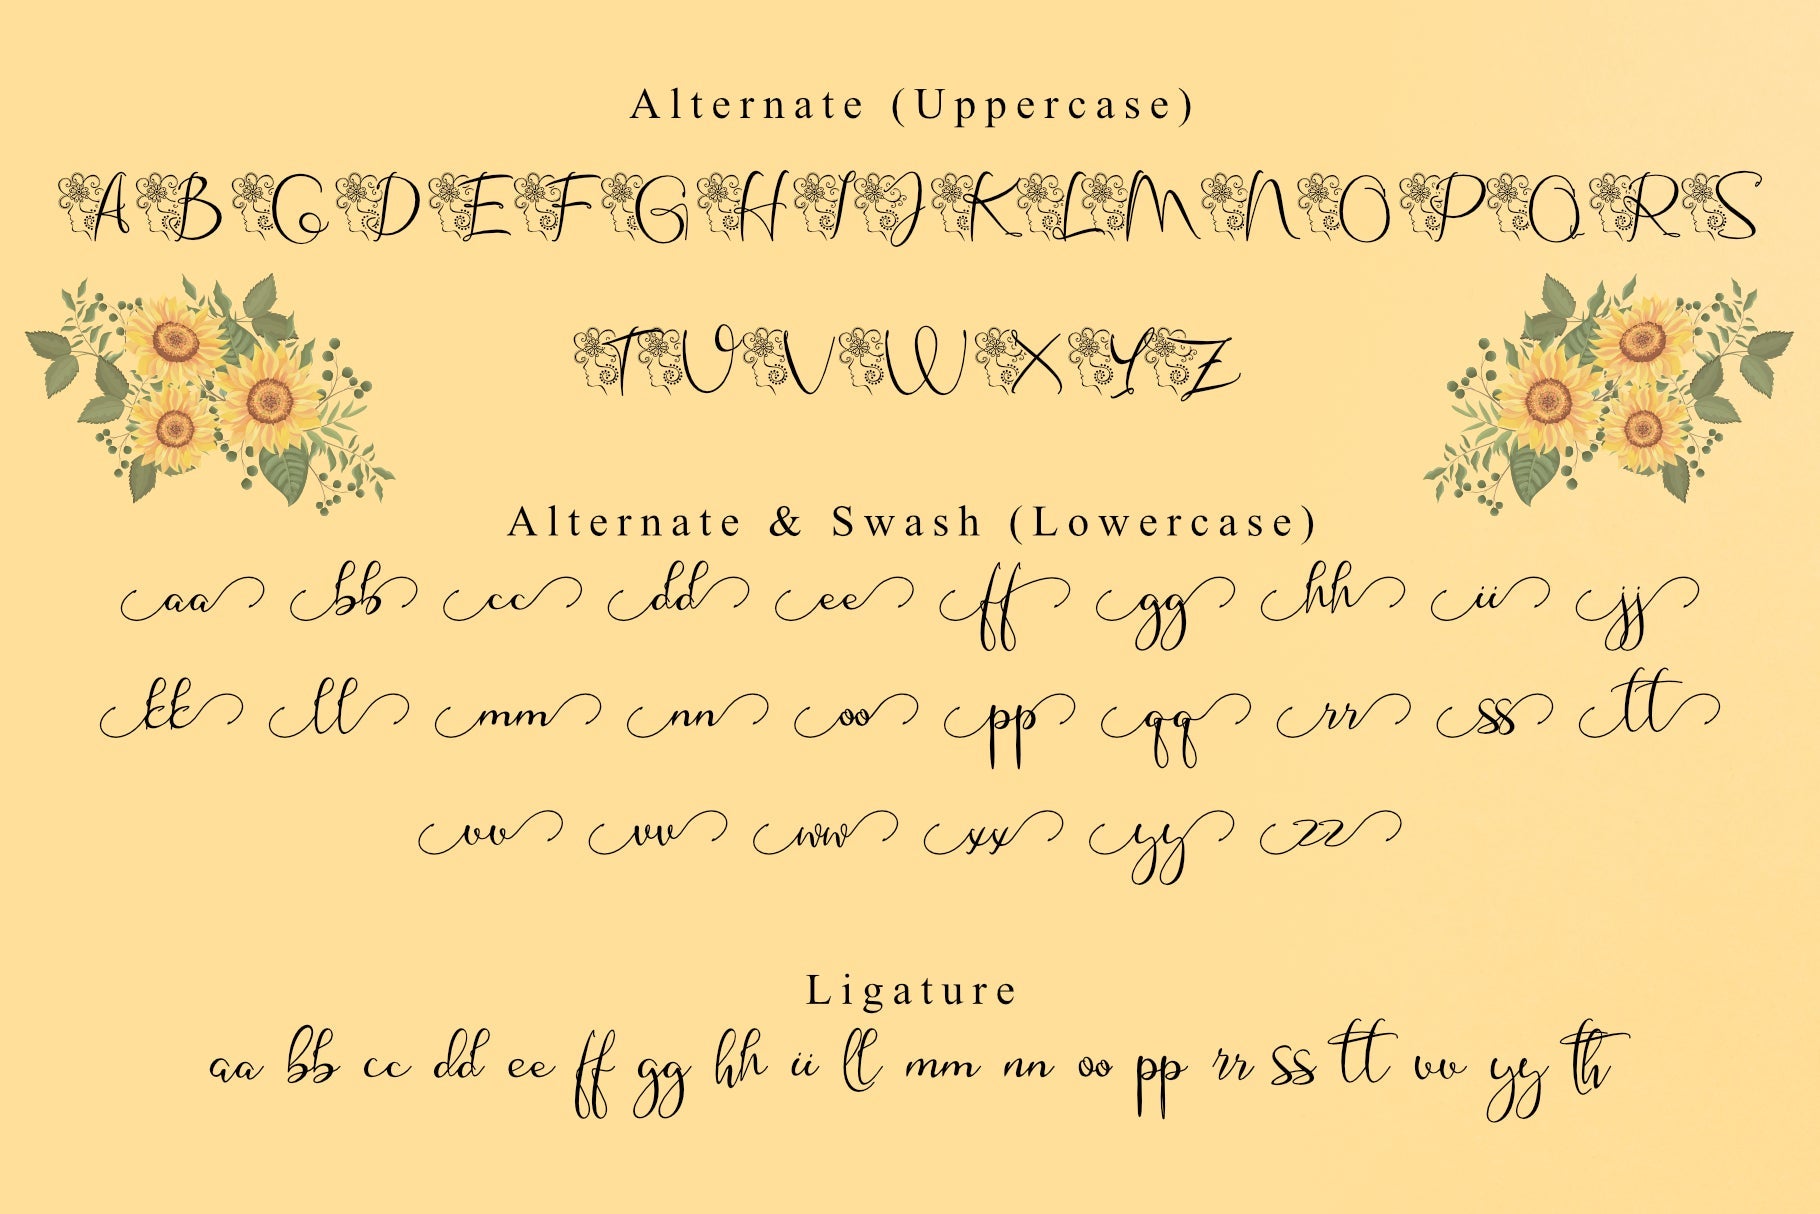 Alternate (Uppercase)
A B C D E F G H I J K L M N O P Q R S
T U V W X Y Z
Alternate & Swash (Lowercase)
aa bb cc dd ee ff gg hh ii jj
kk ll mm nn oo pp qq rr ss tt
vv vv ww xx yy zz
Ligature
aa bb cc dd ee ff gg hh ii ll mm nn oo pp rr ss tt vv yy th